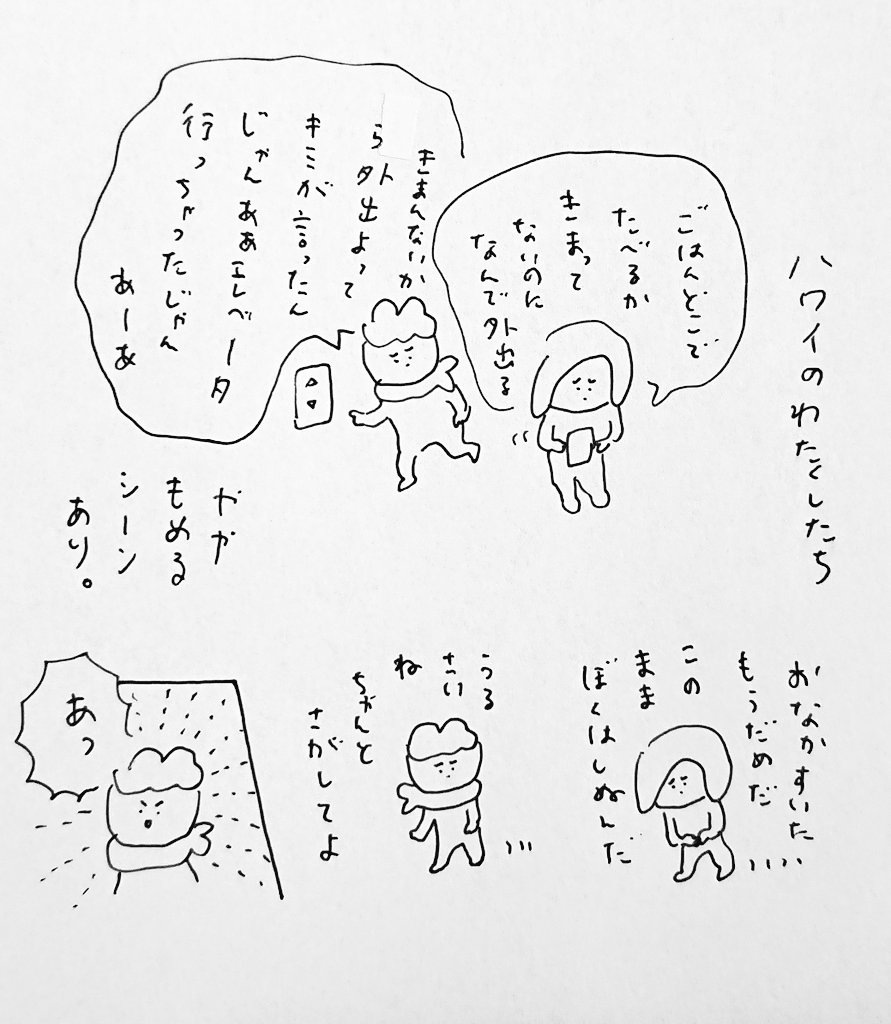 ハワイのわたくしたち
ごはんどこで
たべるか
きまって
ないのに
なんで外出る
きまんないか
ら外出よって
キミが言ったん
じゃんああエレベータ
行っちゃったじゃん
あーあ
ややもめる
シーン
あり。
おなかすいた
もうだめだ
この
まま
ぼくはしぬんだ
うる
さい
ね
ちゃんと
さがしてよ
あっ